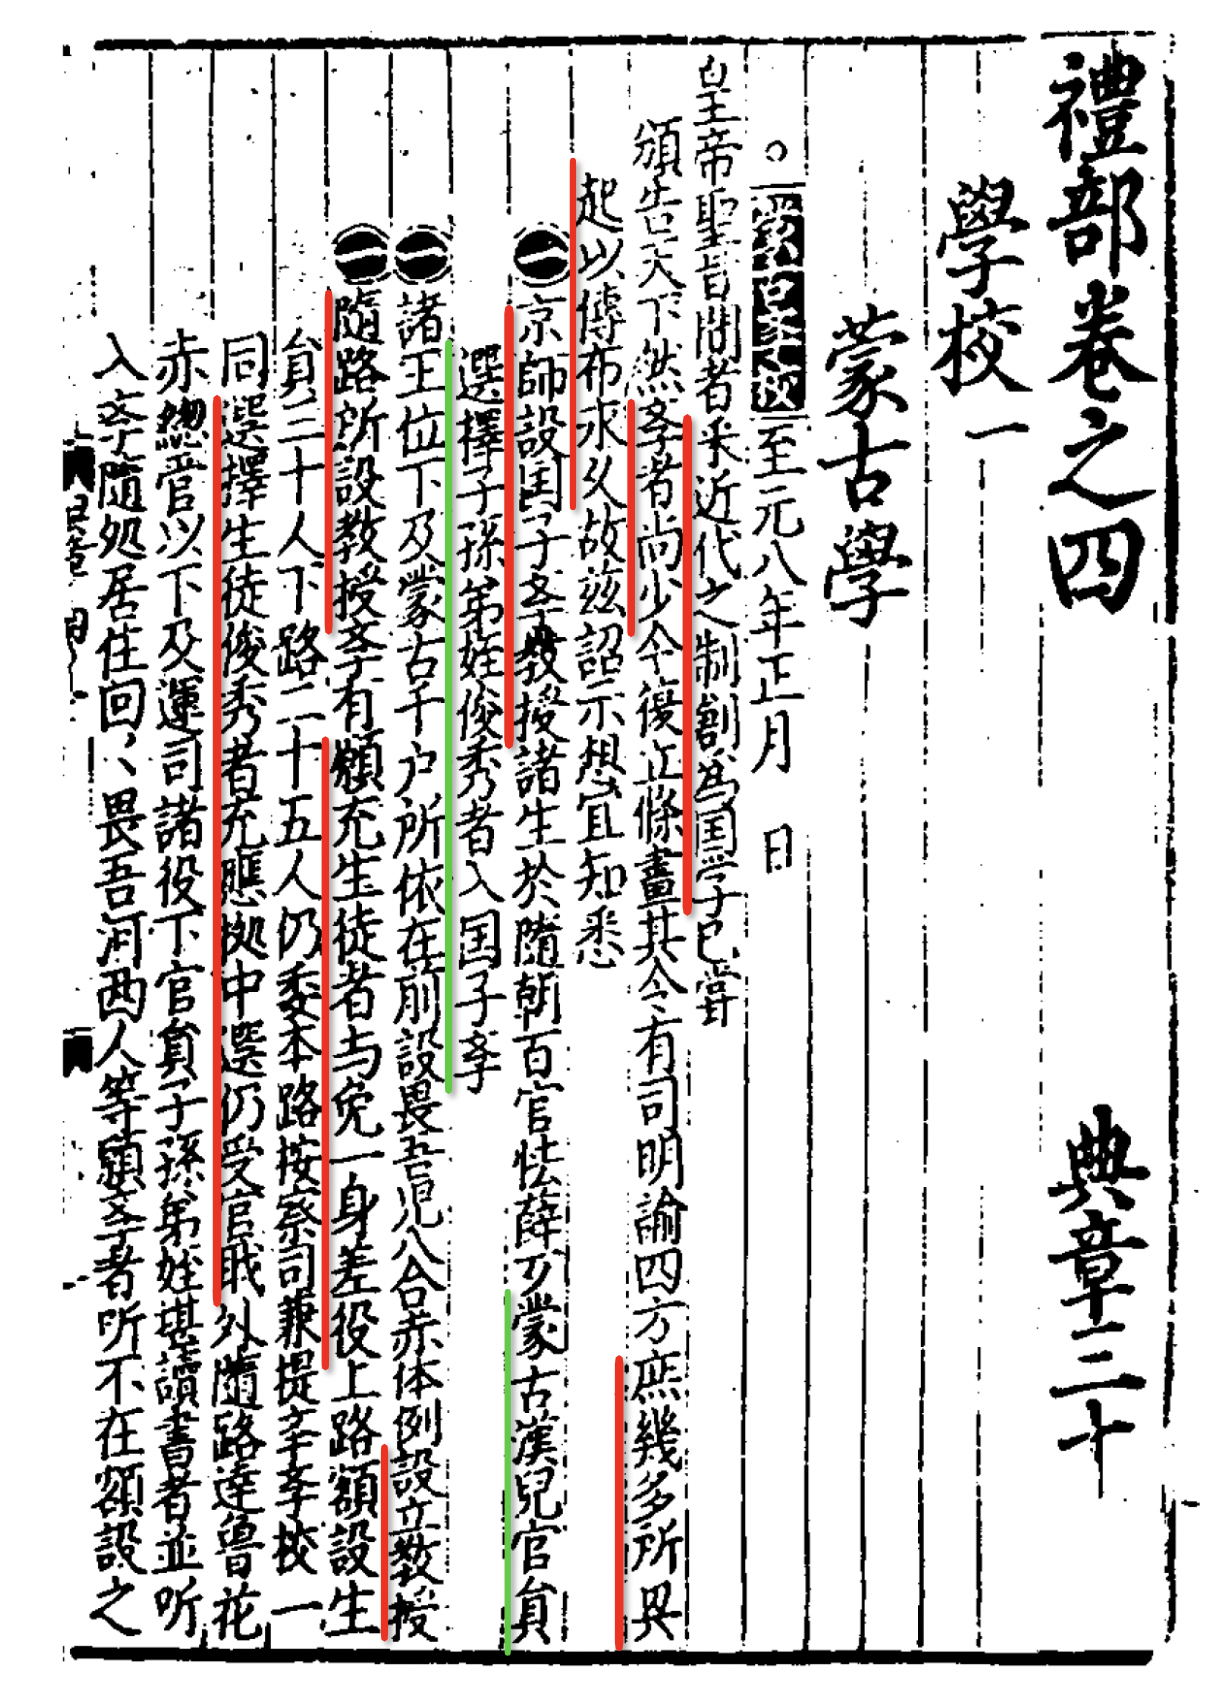 禮部卷之四 典章三十
學校一
蒙古學
至元八年正月 日
皇帝聖旨間者采近代之制創爲国学已嘗
頒告天下然斈者尚少今復立條畫其令有司明諭四方庶幾多所具
起以傳布永久故茲詔示想宜知悉
一京師設国子斈教授諸生於隨朝百官怯薛歹蒙古漢兒官員
選擇子孫弟姪俊秀者入国子斈
一諸王位下及蒙古千户所依在前設畏吾児八合赤体例設立教授
一隨路所設教授斈有願充生徒者与免一身差役上路額設生
員三十人下路二十五人仍委本路按察司兼提斈斈校一
同選擇生徒俊秀者充應㨿中選仍受官戝外隨路達魯花
赤總官以下及運司諸役下官員子孫弟姪堪讀書者並听
入斈隨処居住回々畏吾河西人等願斈者听不在額設之